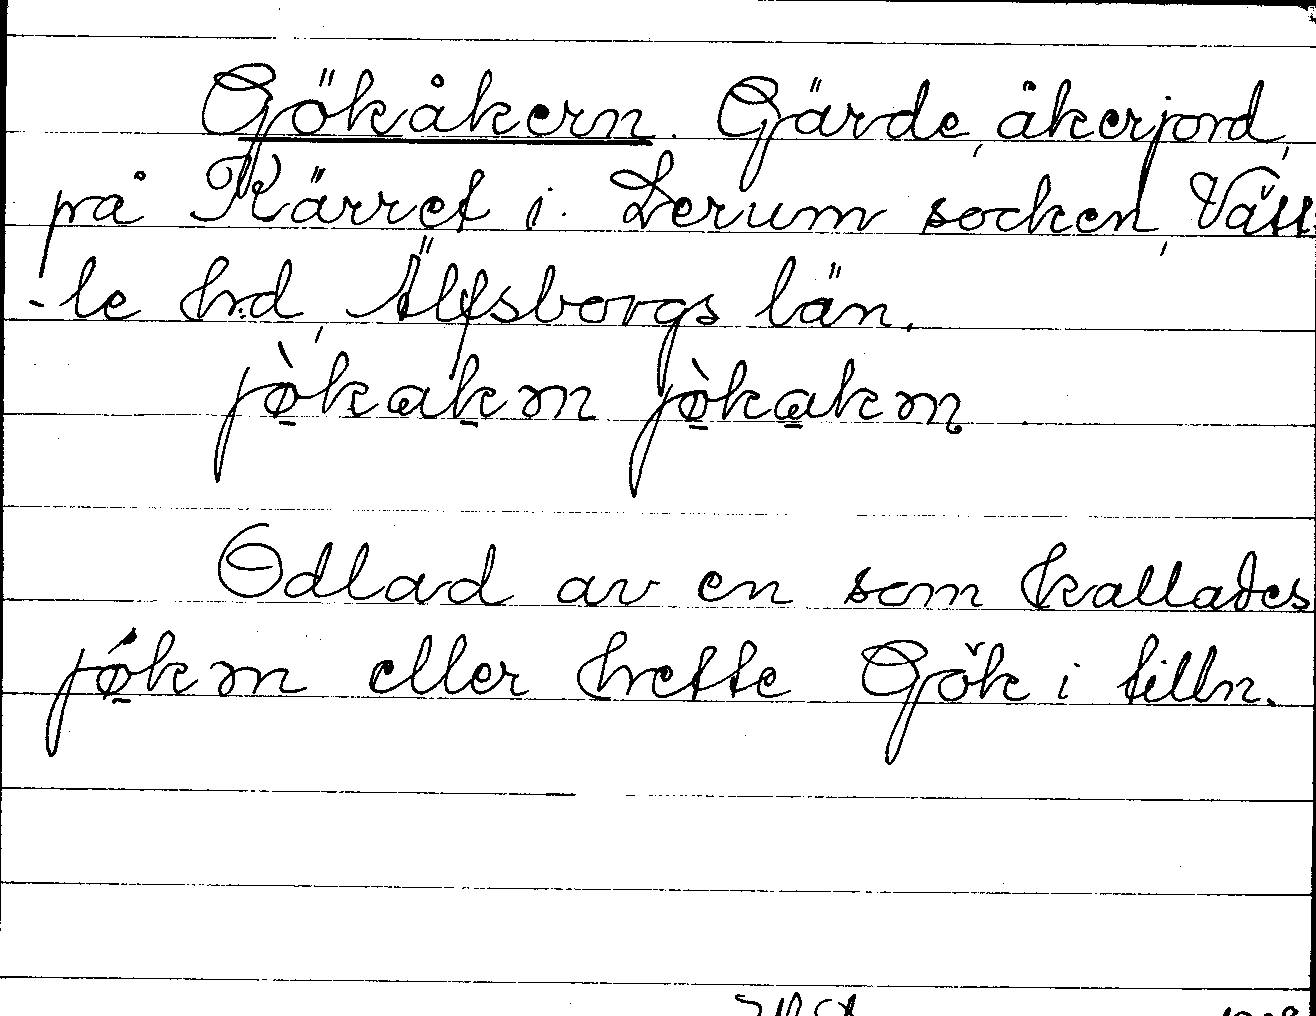 Gökåkern. Gärde, åkerjord,
på Kärret i. Lerum socken, Vätt
-le hd, Älfsborgs län.
jø̀kakm jø̀kakm
Odlad av en som kallades
jǿkm eller hette Gök i tilln.